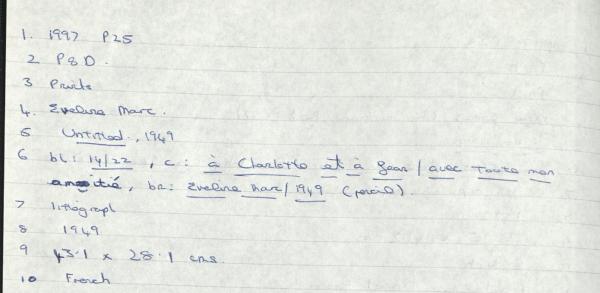 1. 1997 P25
2 P&D.
3 Prints
4. Eveline Marc.
5 Untitled, 1949
6 bl: 14/22, c: à Charlotte et à Jean / avec toute mon
amitié, br: Eveline Marc/1949 (pencil).
7 lithograph
8 1949
9 43.1 x 28.1 cms.
10 French